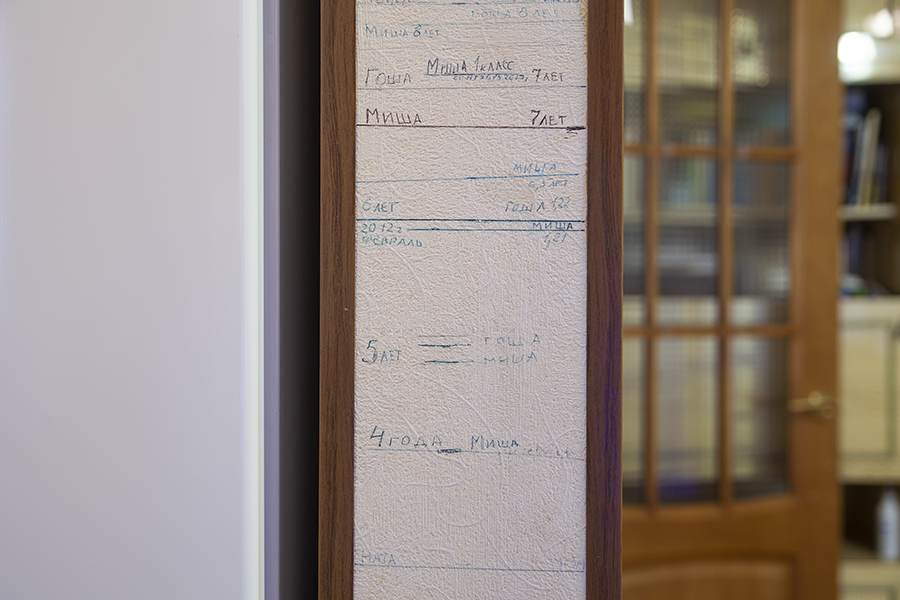 Гоша 8 лет
Миша 8 лет
Миша 1 класс
Гоша 7 лет
Миша 7 лет
Миша
6,5 лет
6 лет Гоша 1,22
2012 г Миша
февраль 1,21
5 лет Гоша
Миша
4 года Миша
Ната